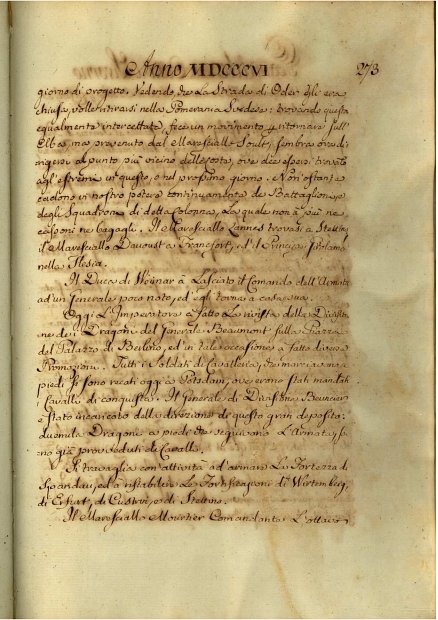 Anno MDCCCVI 273
giorno di progetto. Vedendo, che La Strada di Oder gli era
chiusa, volle ritirarsi nella Pomerania Svedese: trovando questa
egualmente intercettata, fece un movimento p ritornare sull'
Elba, ma prevenuto dal Maresciallo Soult, sembra ora di
rigersi al punto più vicino della costa, ove dev'essersi trovato
agl'estremi in questo, o nel prossimo giorno. Non ostante
cadono in nostro potere continuamente de Battaglioni, e
degli Squadroni di detta Colonna, La quale non à più ne
cassoni ne bagagli. Il Maresciallo Lannes trovasi a Stettin,
il Maresciallo Davoust a Francfort, ed il Principe
nella Slesia.
Il Duca di Weimar à Lasciato il Comando dell'Armata
ad'un Generale poco noto, ed egli torna a casa sua.
Oggi L'Imperatore à fatto La rivista della Divisio
ne dei Dragoni del Generale Beaumont sulla Piazza
del Palazzo di Berlino, ed in tale occasione à fatto diverse
Promozioni. Tutti i Soldati di Cavalleria, che marciavano a
piedi si sono recati oggi a Potsdam, ove erano stati mandati
i Cavalli di conquista. Il Generale di Divisione Bourcier
e stato incaricato della direzione di questo gran deposito.
duemila Dragoni a piedi che seguivano L'Armata, so
no già proveduti di Cavallo.
Si travaglia con attività ad'armare La Fortezza di
Spandau, ed à ristabilire Le Fortificazioni di Wirtemberg,
di Erfurt, di Custrin, e di Stettino.
Il Maresciallo Mourtier Comandante L'ottavo